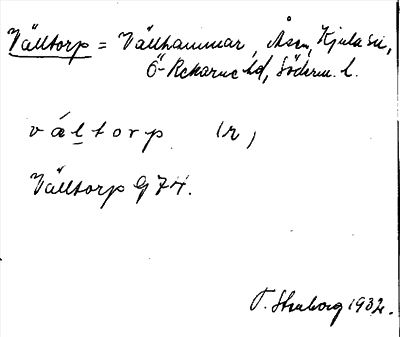 Välltorp = Vällhammar, Åsen, Kjula sn,
Ö-Rekarne hd, Söderm. l.
váltorp (r)
Välltorp G 74.
T. Stenborg 1932.